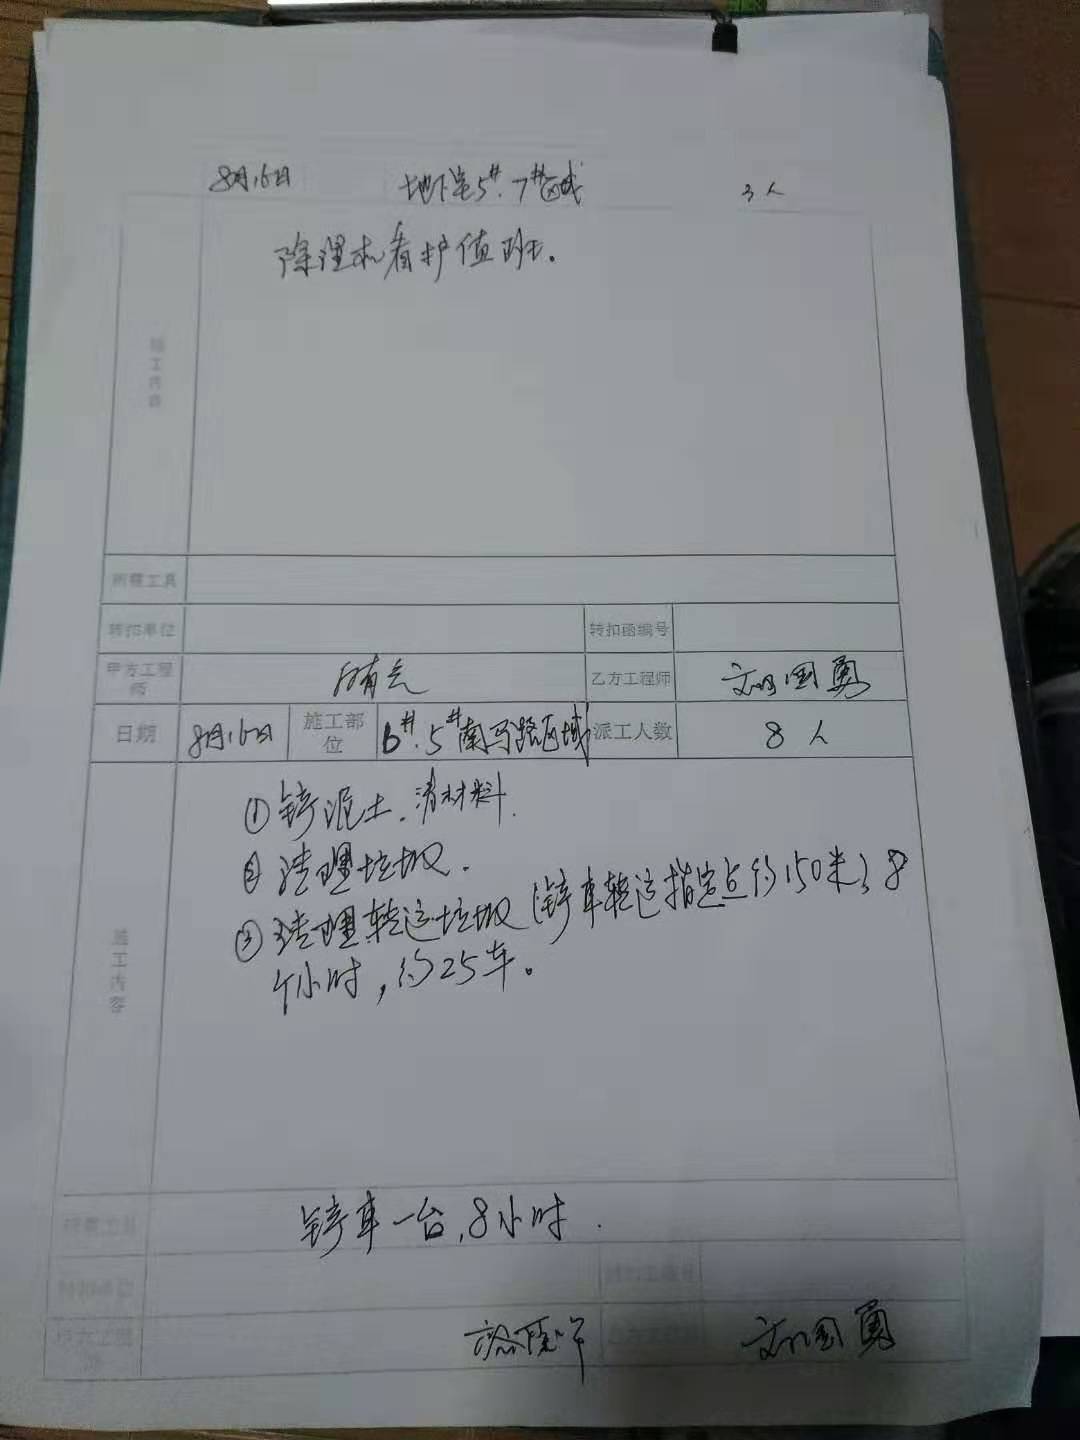 8月16日 地下室5#.7#区域 3人
施工内容
除湿机看护值班。
所需工具
转扣单位 转扣函编号
甲方工程师 乙方工程师 刘国勇
日期 8月16日 施工部位 6#.5#南马路区域 派工人数 8人
施工内容
①铲泥土.清材料.
②清理垃圾.
③清理转运垃圾(铲车转运指定点约150米)8
个小时,约25车。
所需工具 铲车一台,8小时.
转扣单位 转扣函编号
甲方工程师 乙方工程师 刘国勇